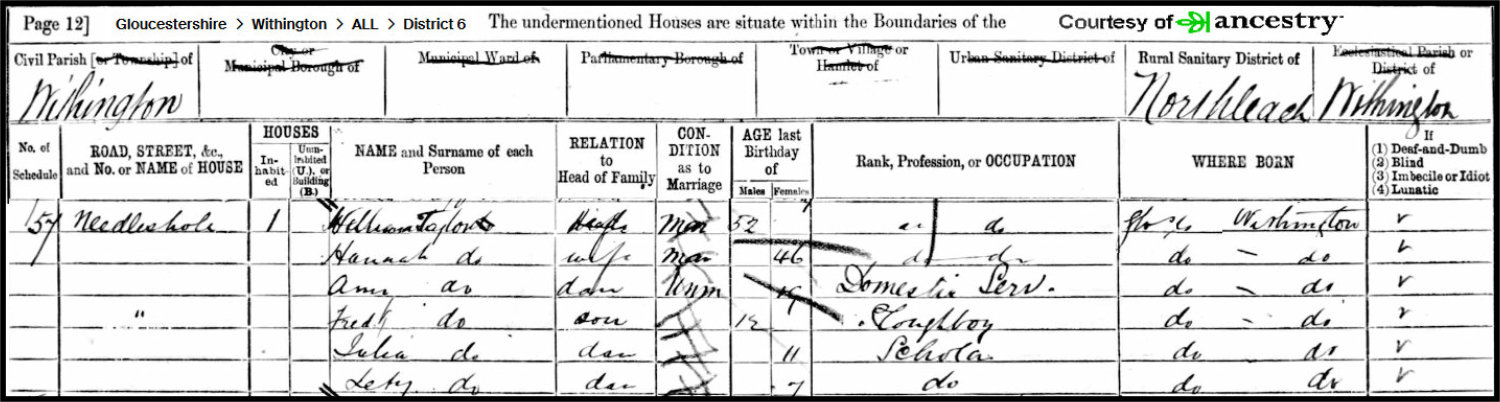 Page 12] Gloucestershire > Withington > ALL > District 6 The undermentioned Houses are situate within the Boundaries of the Courtesy of ancestry
Civil Parish [or Township] of City or Municipal Borough of Municipal Ward of Parliamentary Borough of Town or Village or Hamlet of Urban Sanitary District of Rural Sanitary District of Ecclesiastical Parish or District of
Withington Northleach Withington
No. of Schedule ROAD, STREET, &c., and No. or NAME of HOUSE HOUSES In-habit-ed Unin-habited (U.), or Building (B.) NAME and Surname of each Person RELATION to Head of Family CON-DITION as to Marriage AGE last Birthday of Males Females Rank, Profession, or OCCUPATION WHERE BORN If (1) Deaf-and-Dumb (2) Blind (3) Imbecile or Idiot (4) Lunatic
57 Needleshole 1 William Taylor Head Mar 52 do Withington
Hannah do wife Mar 46 do do do do
Ann do dau Unm 19 Domestic Serv. do do
" Fredk do son 12 Ploughboy do do
Julia do dau 11 Scholar do do
Lety do dau 7 do do do